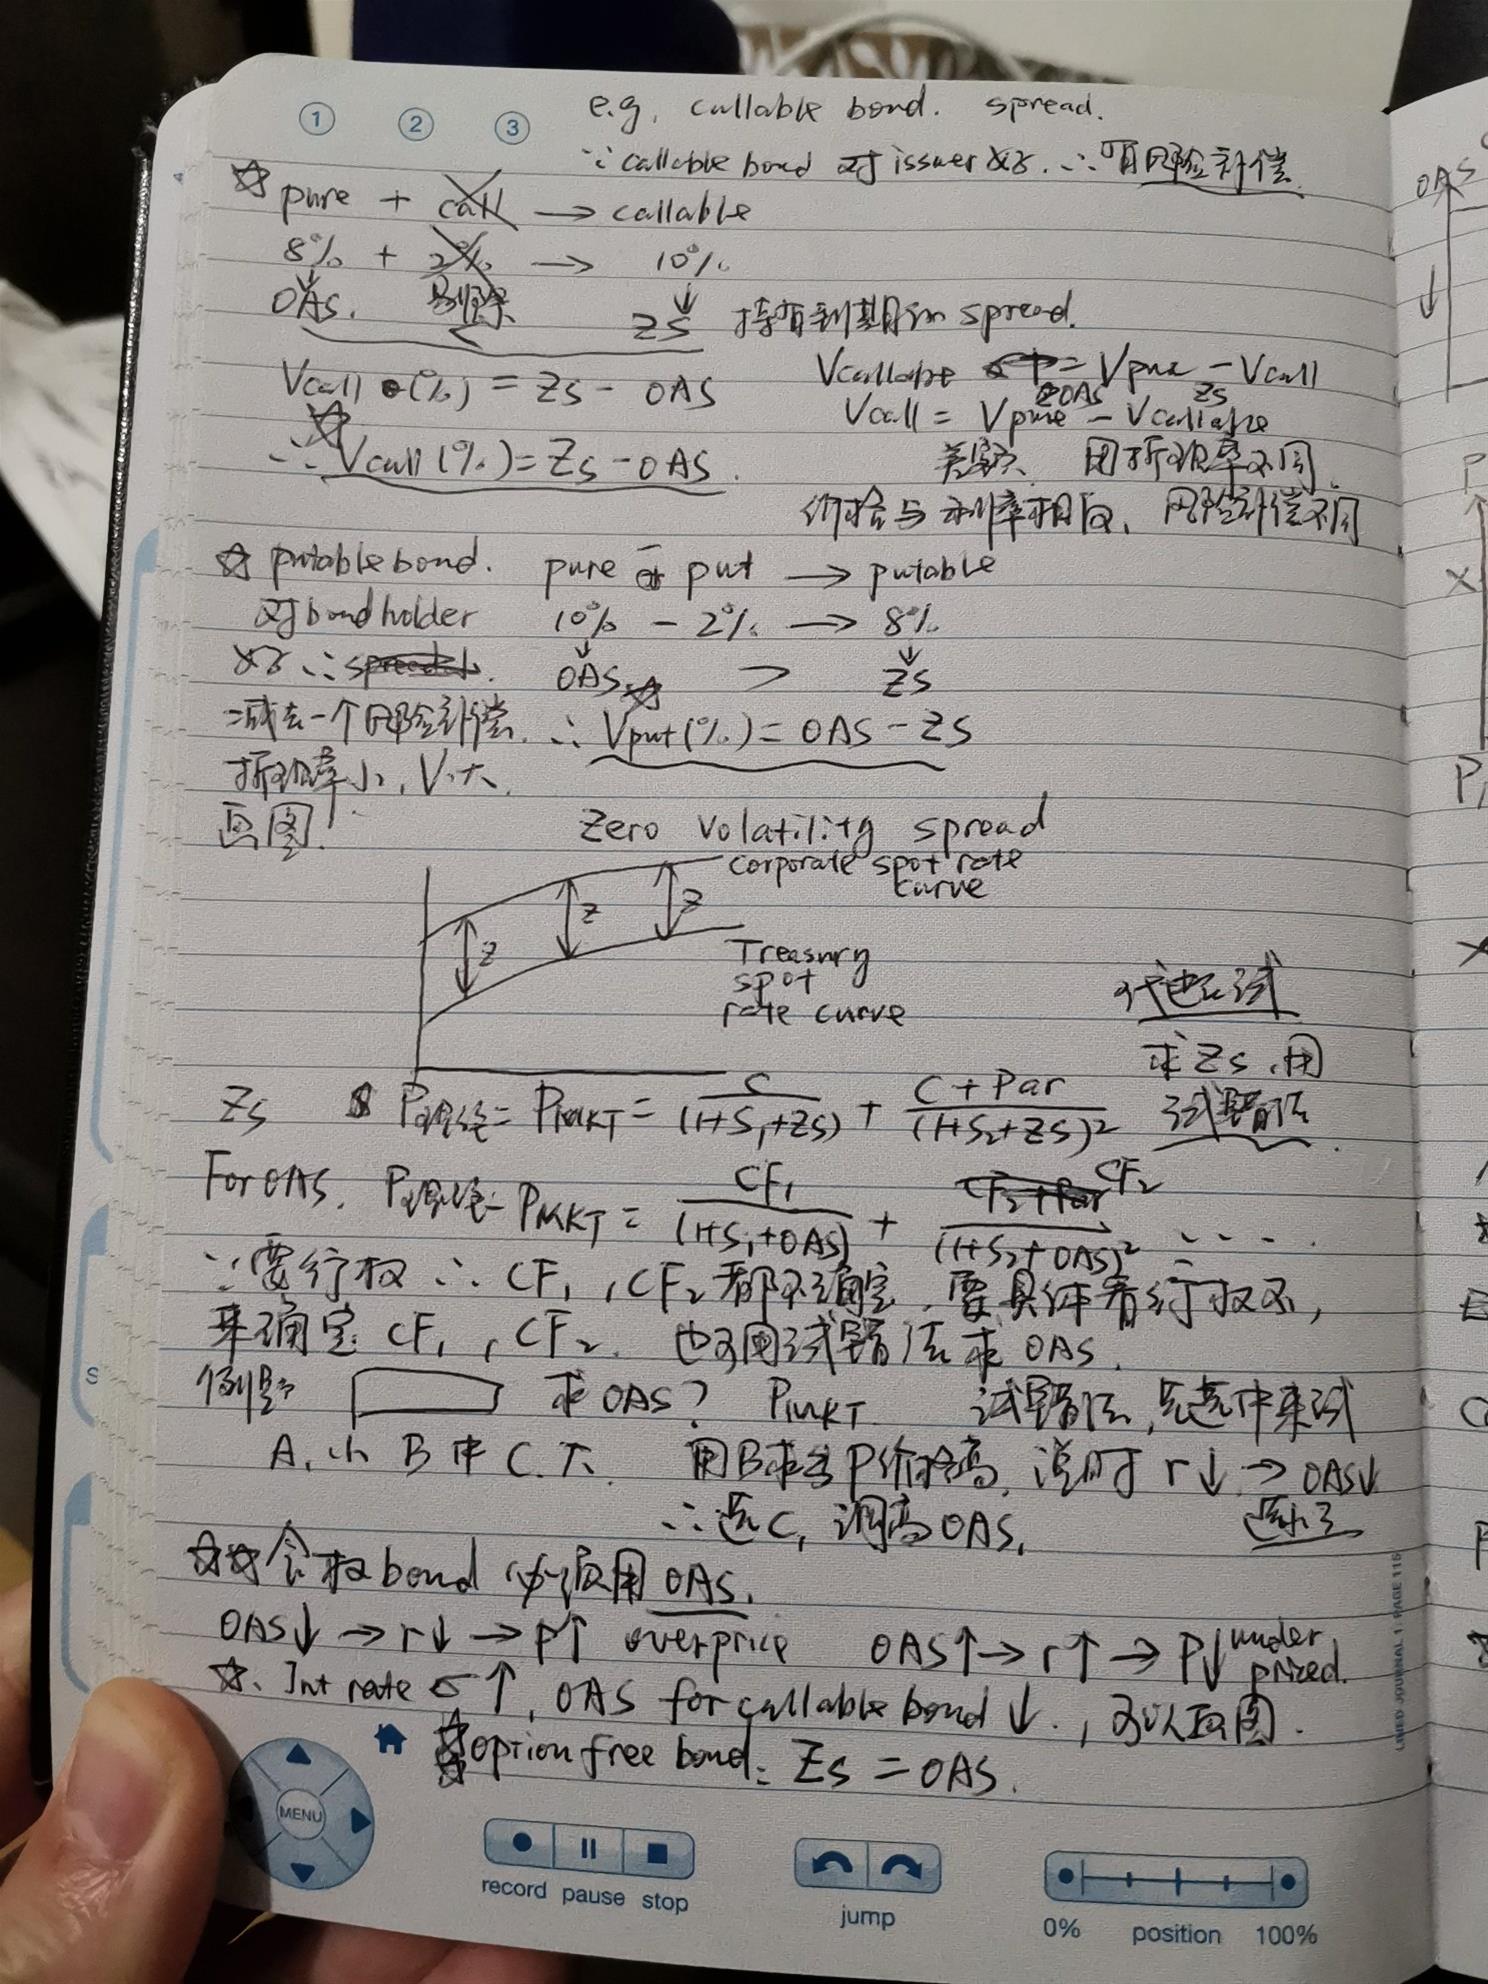 ① ② ③
e.g. callable bond. spread.
∵ callable bond 对 issuer 好. ∴ 有风险补偿
☆ pure + call → callable
8% + 2% → 10%
OAS. 剔除 ZS 持有到期的 spread.
Vcall (%) = ZS - OAS
Vcallable = Vpure - Vcall
OAS ZS
Vcall = Vpure - Vcallable
☆
∴ Vcall (%) = ZS - OAS.
因折现率不同.
价格与利率相反, 风险补偿不同
☆ putable bond. pure - put → putable
对 bond holder 10% - 2% → 8%
好 ∴ OAS > ZS
减去一个风险补偿. ∴ Vput(%) = OAS - ZS
折现率小, V大.
画图.
Zero Volatility spread
corporate spot rate curve
Z Z Z
Treasury spot rate curve
求 ZS, 用
试错法.
ZS P理论 = PMKT = C/(1+S₁+ZS) + (C + Par)/(1+S₂+ZS)²
For OAS. P理论 = PMKT = CF₁/(1+S₁+OAS) + CF₂/(1+S₂+OAS)² ....
∵ 要行权 ∴ CF₁, CF₂ 都不确定, 要具体看行权不,
来确定 CF₁, CF₂. 也可用试错法求 OAS.
例题 求 OAS? PMKT 试错法, 先选中来试
A. 小 B 中 C. 大. 用B求出P价格高, 说明 r↓ → OAS↓
∴ 选C, 调高OAS. 选小了
☆☆ 含权 bond 必须用 OAS.
OAS↓ → r↓ → P↑ overprice OAS↑ → r↑ → P↓ under prized.
☆. Int rate σ↑, OAS for callable bond ↓., 可以画图.
☆ option free bond: ZS = OAS.
MENU
record pause stop
jump
0% position 100%
LINED JOURNAL 1 | PAGE 115
S
OAS
P
X
P